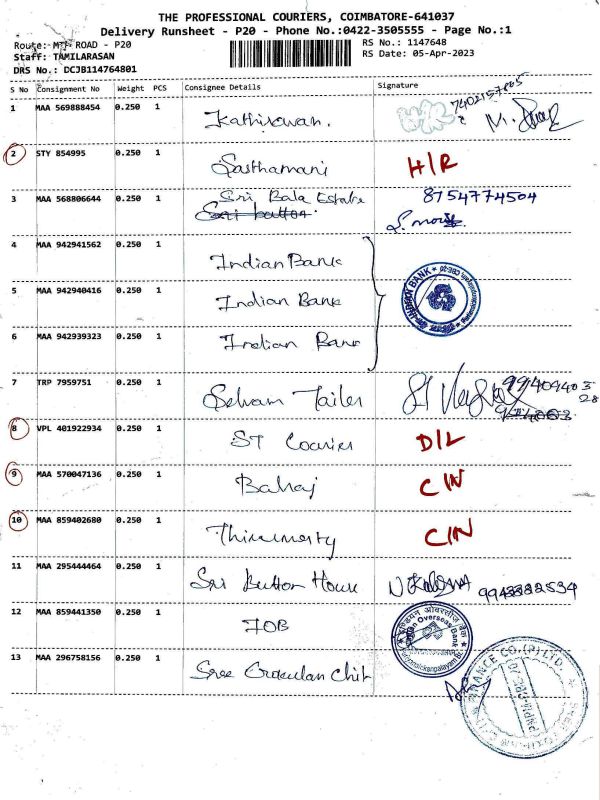 THE PROFESSIONAL COURIERS, COIMBATORE-641037
Delivery Runsheet - P20 - Phone No.:0422-3505555 - Page No.:1
Route: MTP ROAD - P20
RS No.: 1147648
Staff: TAMILARASAN
RS Date: 05-Apr-2023
DRS No.: DCJB114764801
S No Consignment No Weight PCS Consignee Details Signature
1 MAA 569888454 0.250 1 Kathiravan.
2 STY 854995 0.250 1 Sasthamani H/R
3 MAA 568806644 0.250 1 Sri Bala Estate 8754774504
4 MAA 942941562 0.250 1 Indian Bank
5 MAA 942940416 0.250 1 Indian Bank
6 MAA 942939323 0.250 1 Indian Bank
7 TRP 7959751 0.250 1 Selvam Tailer
8 VPL 401922934 0.250 1 ST Courier D/L
9 MAA 570047136 0.250 1 Balraj C/N
10 MAA 859402680 0.250 1 Thirumurty C/N
11 MAA 295444464 0.250 1 Sri Button House
12 MAA 859441350 0.250 1 IOB
13 MAA 296758156 0.250 1 Sree Gokulan Chit